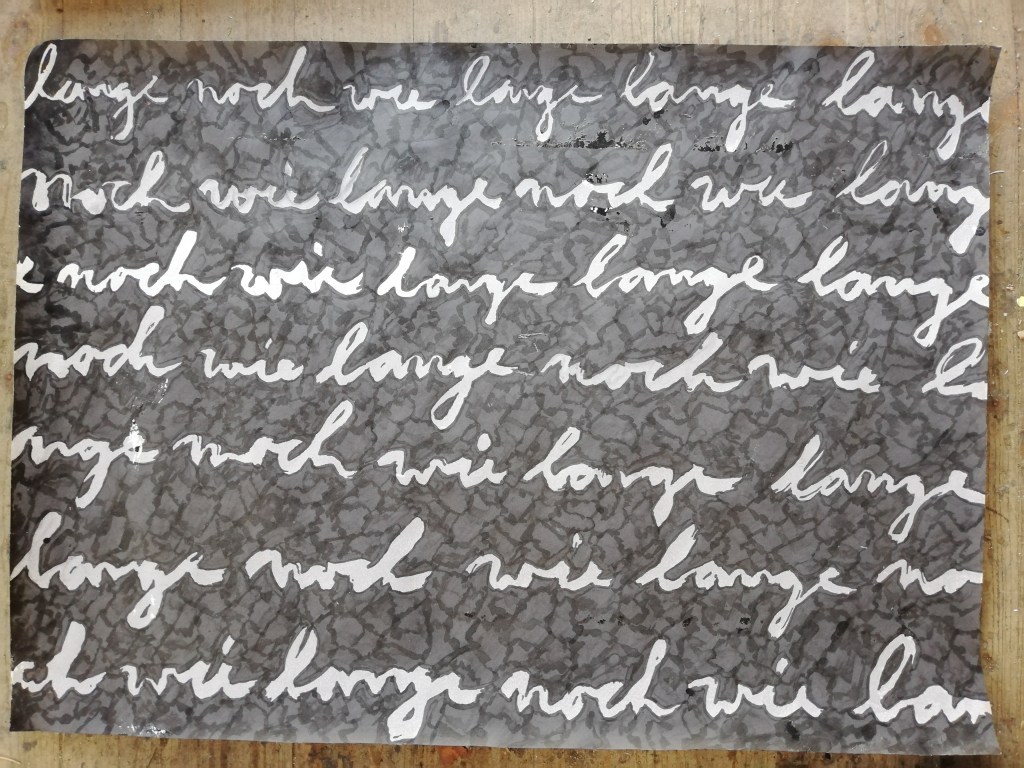 lange noch wie lange lange lange
noch wie lange noch wie lang
e noch wie lange lange lange
noch wie lange noch wie la
ange noch wie lange lange
lange noch wie lange no
ch wie lange noch wie lan